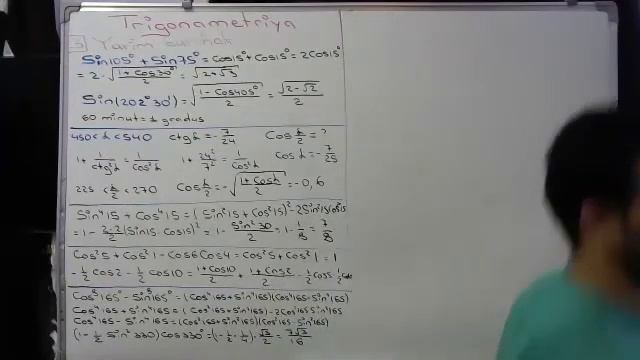 Trigonametriya
Yarim burchak
Sin105° + Sin75° = Cos15° + Cos15° = 2Cos15°
= 2 · √((1 + Cos30°)/2) = √(2+√3)
Sin(202° 30') = √((1 - Cos405°)/2) = √(2-√2)/2
60 minut = 1 gradus
450 < α < 540 ctgα = -7/24 Cos α/2 = ?
1 + 1/ctg²α = 1/Cos²α 1 + 24²/7² = 1/Cos²α Cosα = -7/25
225 < α/2 < 270 Cos α/2 = -√((1+Cosα)/2) = -0,6
Sin⁴15 + Cos⁴15 = (Sin²15 + Cos²15)² - 2Sin²15Cos²15
= 1 - 2·2/2 (Sin15·Cos15)² = 1 - Sin²30/2 = 1 - 1/8 = 7/8
Cos²5 + Cos²1 - Cos6Cos4 = Cos²5 + Cos²1 -
- 1/2 Cos2 - 1/2 Cos10 = (1+Cos10)/2 + (1+Cos2)/2 -
Cos⁸165° - Sin⁸165° = (Cos⁴165 + Sin⁴165)(Cos⁴165 - Sin⁴165)
Cos⁴165 + Sin⁴165 = (Cos²165 + Sin²165) - 2Cos²165 Sin²165
Cos⁴165 - Sin⁴165 = (Cos²165 + Sin²165)(Cos²165 - Sin²165)
(1 - 1/2 Sin²330) Cos330° = (1 - 1/2 · 1/4) · √3/2 = 7√3/16